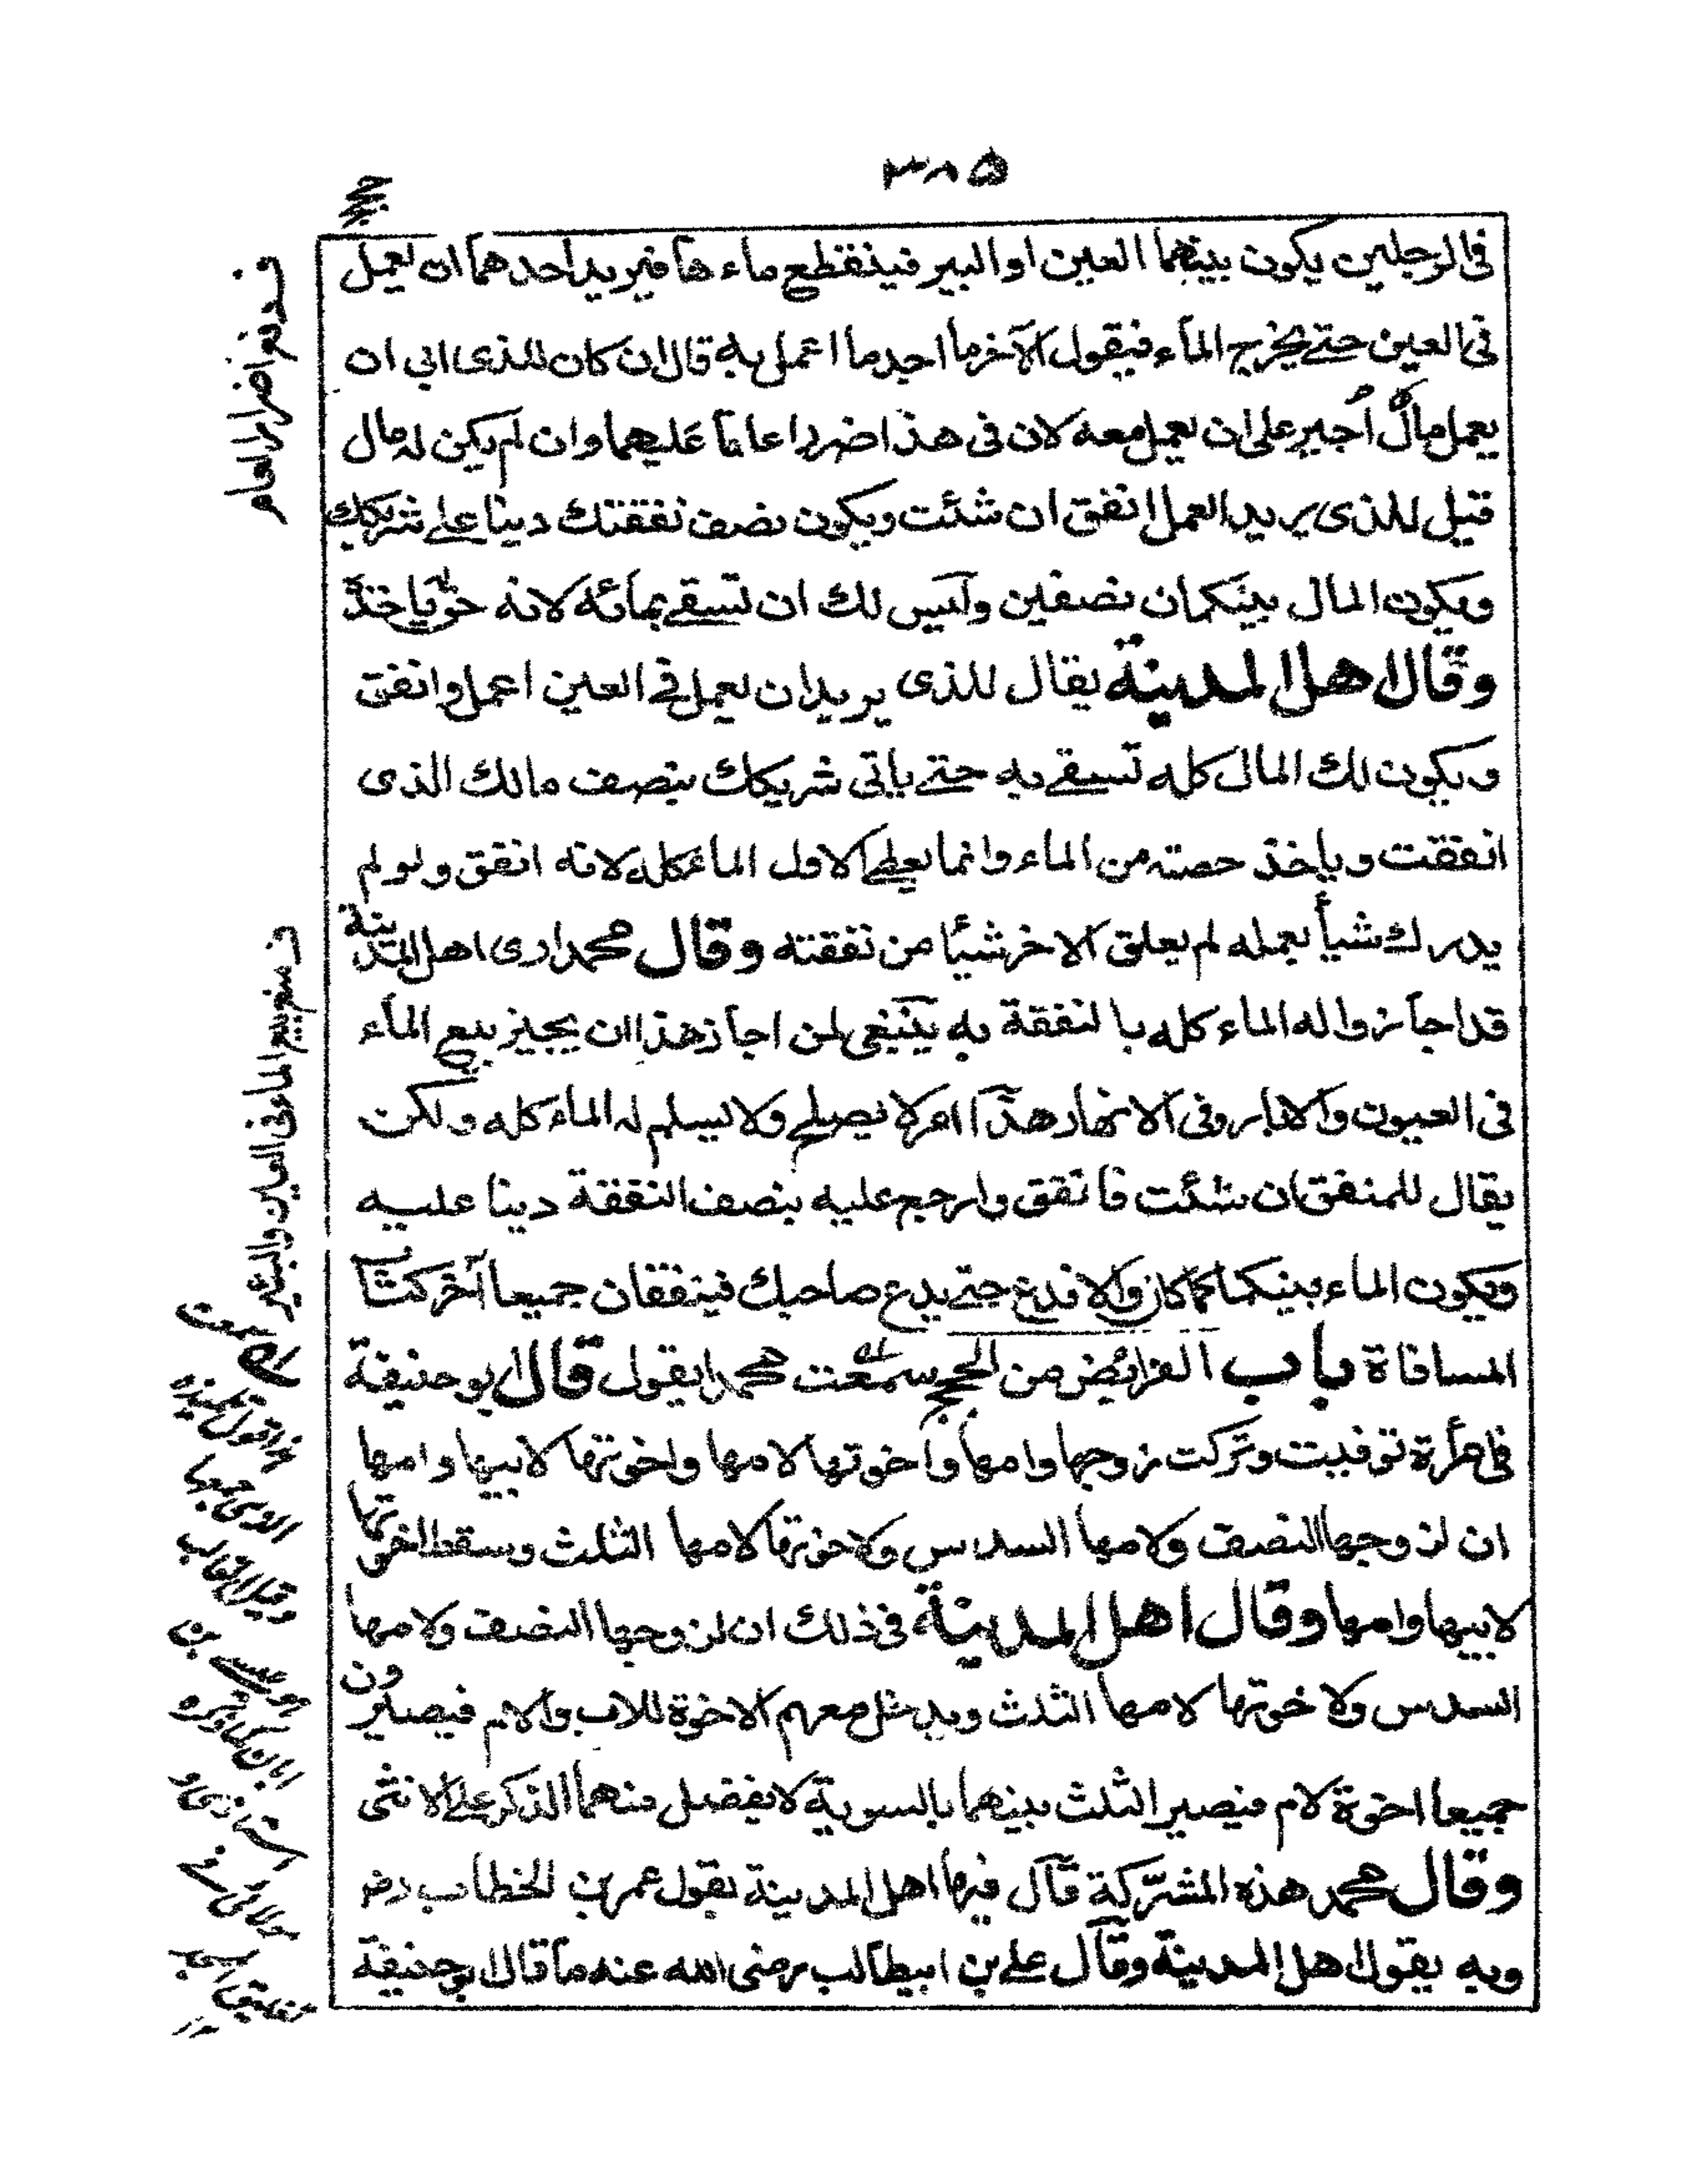 ٣٨٥
حجج
فى الرجلين يكون بينهما العين او البير فينقطع ماءها فيريد احدهما ان يعمل
فى العين حتے يخرج الماء فيقول الآخر ما اجد ما اعمل به قال ان كان للذى ابى ان
يعمل مال اُجبر على ان يعمل معه لان فى هذا ضررا عاما عليهما وان لم يكن له مال
قيل للذى يريد العمل انفق ان شئت ويكون نصف نفقتك دينا علے شريكك
ويكون المال بينكمان نصفين وليس لك ان تسقے بمائه لانه حق ياخذ
وقال اهل المدينة يقال للذى يريد ان يعمل فے العين اعمل وانفق
ويكون لك المال كله تسقے به حتے ياتى شريكك بنصف مالك الذى
انفقت وياخذ حصته من الماء وانما يعطے الاول الماء كله لانه انفق ولو لم
يدرك شيأ بعمله لم يعلق الاخر شيئا من نفقته وقال محمد ارى اهل المدينة
قد اجازوا له الماء كله با لنفقة به ينبغى لمن اجاز هذا ان يجيز بيع الماء
فى العيون والابار وفى الانهار هذا امر لا يصلح ولا يسلم له الماء كله ولكن
يقال للمنفق ان شئت فانفق وارجع عليه بنصف النفقة دينا عليه
ويكون الماء بينكما كما كان والا فدع حتے يدع صاحبك فينفقان جميعا آخر كتاب
المساقاة باب الفرائض من الحجج سمعت محمدا يقول قال ابو حنيفة
فى امرأة توفيت وتركت زوجها وامها واخوتها لامها واخوتها لابيها وامها
ان لزوجها النصف ولامها السدس ولاخوتها لامها الثلث وسقط اخوتها
لابيها وامها وقال اهل المدينة فى ذلك ان لزوجها النصف ولامها
السدس ولاخوتها لامها الثلث ويدخل معهم الاخوة للاب والام فيصيرون
جميعا اخوة لام فيصير الثلث بينهما بالسوية لا يفضل منهما الذكر على الانثى
وقال محمد هذه المشتركة قال فيها اهل المدينة بقول عمر بن الخطاب رض
وبه يقول اهل المدينة وقال علے بن ابيطالب رضى الله عنه ما قال ابو حنيفة
ف دفع اضرار العام
ف منع بيع الماء فى العين والبئر